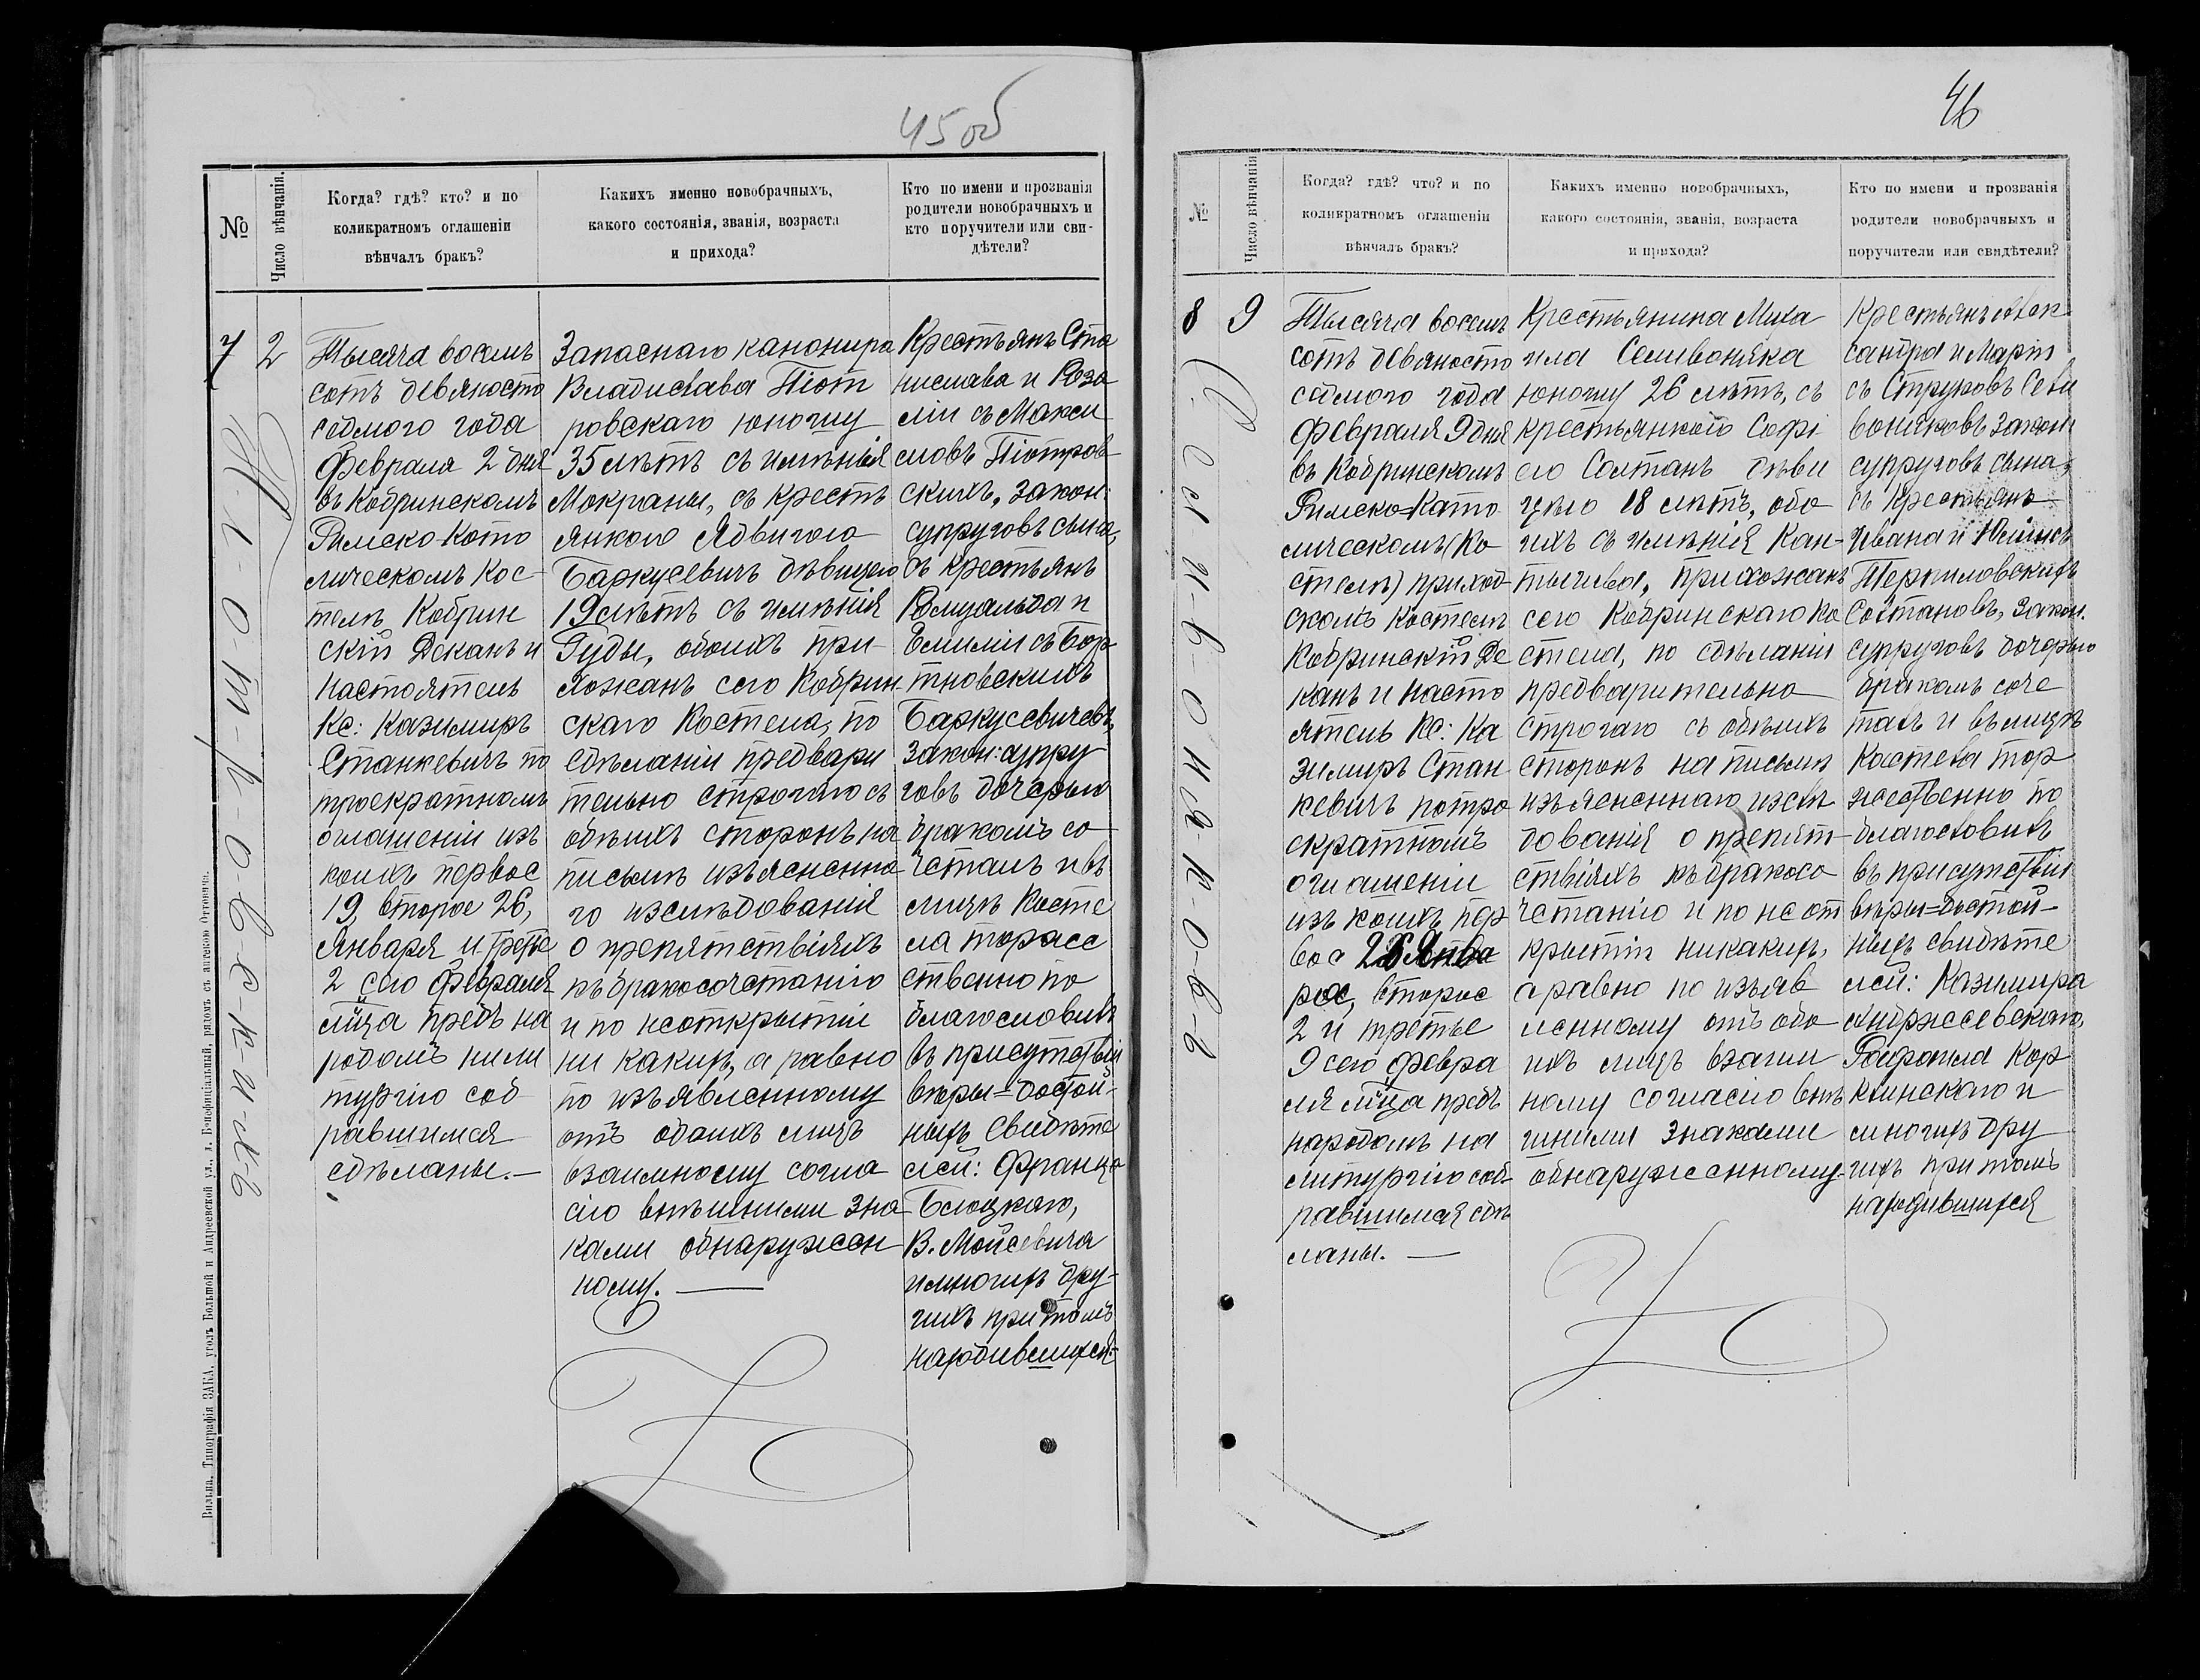 45 об
№
Число вѣнчанія.
Когда? гдѣ? кто? и по
коликратномъ оглашеніи
вѣнчалъ бракъ?
Какихъ именно новобрачныхъ,
какого состоянія, званія, возраста
и прихода?
Кто по имени и прозванія
родители новобрачныхъ и
кто поручители или сви-
дѣтели?
7
2
Тысяча восемь
сотъ девяносто
седмого года
Февраля 2 дня
въ Кобринскомъ
Римско-Като
лическомъ Кос-
телѣ Кобрин
скій Деканъ и
Настоятель
Кс: Казимиръ
Станкевичъ по
троекратномъ
оглашеніи изъ
коихъ первое
19, второе 26,
Января и третье
2 сего Февраля
м̃ца предъ на
родомъ на ли
тургію соб-
равшимся
сдѣланы.—
Запаснаго канонира
Владислава Піот
ровскаго юношу
35 лѣтъ съ имѣнія
Мокраны, съ кресть
янкою Ядвигою
Баркусевичъ дѣвицею
19 лѣтъ съ имѣнія
Гуды, обоихъ при-
хожанъ сего Кобрин-
скаго Костела, по
сдѣланіи предвари
тельно строгаго съ
обѣихъ сторонъ на
письмѣ изъясненна
го изслѣдованія
о препятствіяхъ
къ бракосочетанію
и по неоткрытіи
ни какихъ, а равно
по изъявленному
отъ обоихъ лицъ
взаимному согла
сію внѣшними зна
ками обнаружен
ному. —
Крестьянъ Ста
нислава и Роза
ліи съ Макси
мовъ Піотров
скихъ, закон:
супруговъ сына,
съ крестьянъ
Ромуальда и
Емиліи съ Бор
тновскихъ
Баркусевичевъ,
закон: супру
говъ дочерью
бракомъ со
четалъ и въ
лицѣ Косте
ла торже
ственно по
благословилъ
въ присутствіи
вѣры=достой-
ныхъ Свидѣте
лей: Франца
Блоцкаго,
В. Мойсевича
и многихъ дру-
гихъ при томъ
находившихся.
П-і-о-т-р-о-в-с-к-и-х-ъ
Вильна. Типографія ЗАКА. уголъ Большой и Андреевской ул., д. Бонифаціальный, рядомъ съ аптекою Отговича.
46
№
Число вѣнчанія
Когда? гдѣ? что? и по
коликратномъ оглашеніи
вѣнчалъ бракъ?
Какихъ именно новобрачныхъ,
какого состоянія, званія, возраста
и прихода?
Кто по имени и прозванія
родители новобрачныхъ и
поручители или свидѣтели?
8
9
Тысяча восемь
сотъ девяносто
седмого года
Февраля 9 дня
въ Кобринскомъ
Римско=Като
лическомъ (Ко
стелѣ) приход-
скомъ Костелѣ
Кобринскій Де
канъ и Насто
ятель Кс: Ка
зимиръ Стан
кевичъ по тро
екратномъ
оглашеніи
изъ коихъ пер
вое 26 Янва
рое, второе
2 и третье
9 сего Февра
ля м̃ца предъ
народомъ на
литургію соб-
равшимся сдѣ
ланы. —
Крестьянина Миха
ила Селивоняка
юношу 26 лѣтъ, съ
крестьянкою Софі
ею Солтанъ дѣви
цею 18 лѣтъ, обо
ихъ съ имѣнія Кан-
тычева, прихожанъ
сего Кобринскаго Ко
стела, по сдѣланіи
предварительно
строгаго съ обѣихъ
сторонъ на письмѣ
изъясненнаго изслѣ
дованія о препят-
ствіяхъ къ бракосо
четанію и по не от
крытіи никакихъ,
а равно по изъяв
ленному отъ обо
ихъ лицъ взаим
ному согласію внѣ
шними знаками
обнаруженному.
Крестьянъ Алек
сандра и Маріи
съ Струковъ Сели
воняковъ закон:
супруговъ сына,
съ крестьянъ
Ивана и
Солтановъ, закон.
супруговъ дочерью
бракомъ соче
талъ и въ лицѣ
Костела тор
жественно по
благословилъ
въ присутствіи
вѣры=достой-
ныхъ свидѣте
лей: Казимира
Рафаила Кор
и
многихъ дру
гихъ при томъ
находившихся
С-е-л-и-в-о-н-я-к-о-в-ъ